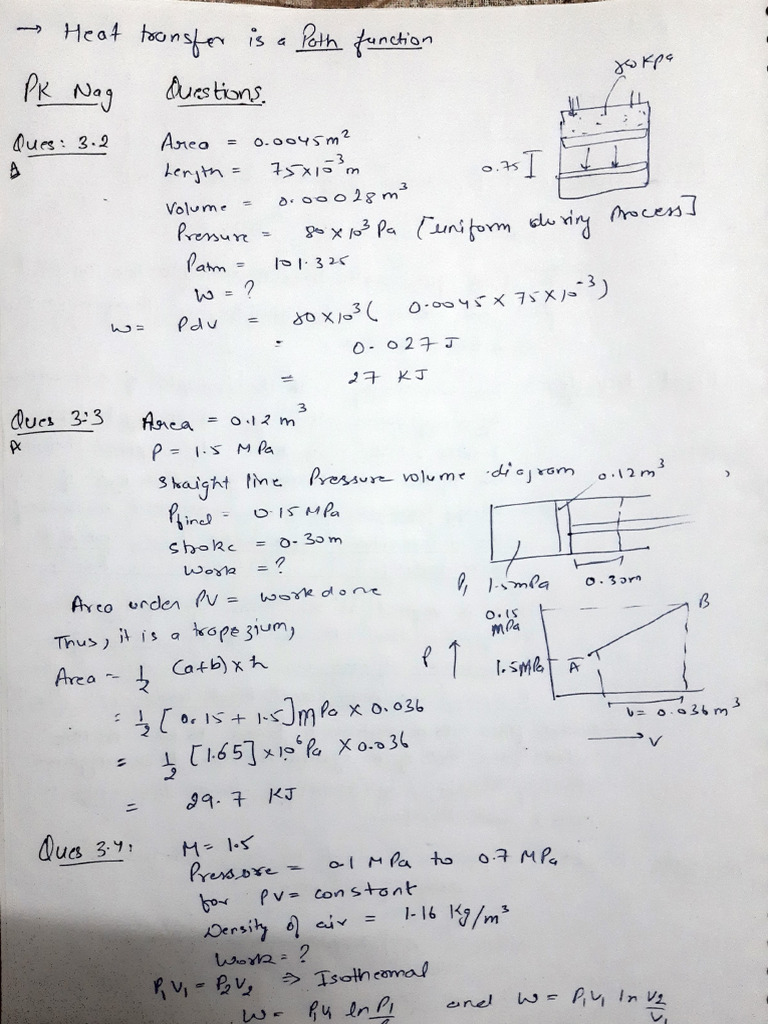 → Heat transfer is a Path function
PK Nag Questions.
80 KPa
Ques: 3.2 Area = 0.0045 m²
Length = 75×10⁻³ m
0.75
Volume = 0.00028 m³
Pressure = 80 × 10³ Pa [uniform during Process]
Patm = 101.325
W = ?
W = Pdv = 80×10³ ( 0.0045 × 75 × 10⁻³)
= 0.027 J
= 27 KJ
Ques 3.3 Area = 0.12 m³
P = 1.5 MPa
Straight line Pressure volume diagram
0.12 m³
Pfinal = 0.15 MPa
Stroke = 0.30m
Work = ?
P₁ 1.5mPa 0.30m
Area under PV = work done
Thus, it is a trapezium,
0.15 mPa
B
P ↑ 1.5MPa A
Area = 1/2 (a+b) × h
= 1/2 [0.15 + 1.5] MPa × 0.036
b = 0.036 m³
→ V
= 1/2 [1.65] × 10⁶ Pa × 0.036
= 29.7 KJ
Ques 3.4: M = 1.5
Pressure = 0.1 MPa to 0.7 MPa
for PV = constant
Density of air = 1.16 Kg/m³
Work = ?
P₁V₁ = P₂V₂ ⇒ Isothermal
W = P₁V₁ ln P₁ and W = P₁V₁ ln V₂/V₁